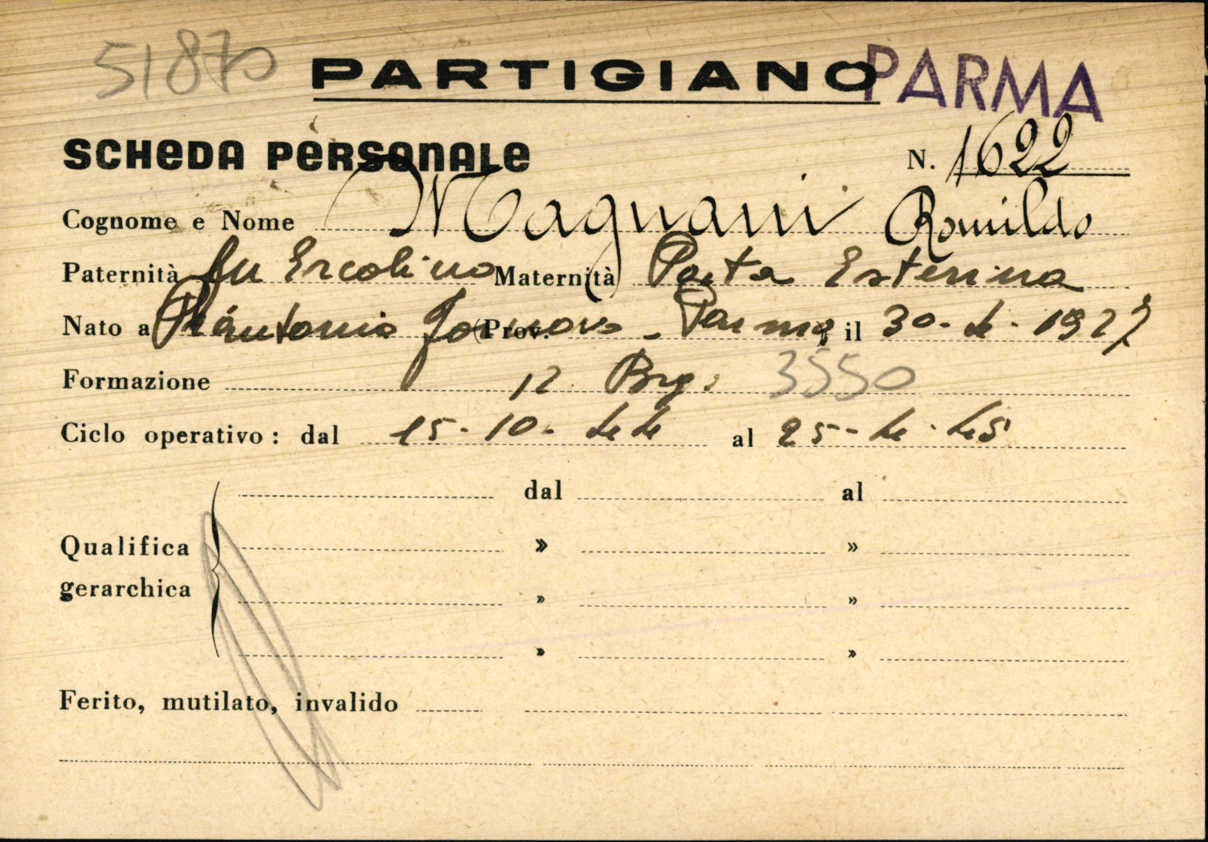 51870 PARTIGIANO PARMA
SCHEDA PERSONALE N. 1622
Cognome e Nome Magnani Romildo
Paternità fu Ercolino Maternità Poeta Esterina
Nato a (Prov. Parma il 30-4-1927
Formazione 12 Brg. 3550
Ciclo operativo: dal 15-10-44 al 25-4-45
dal al
Qualifica » »
gerarchica » »
» »
Ferito, mutilato, invalido